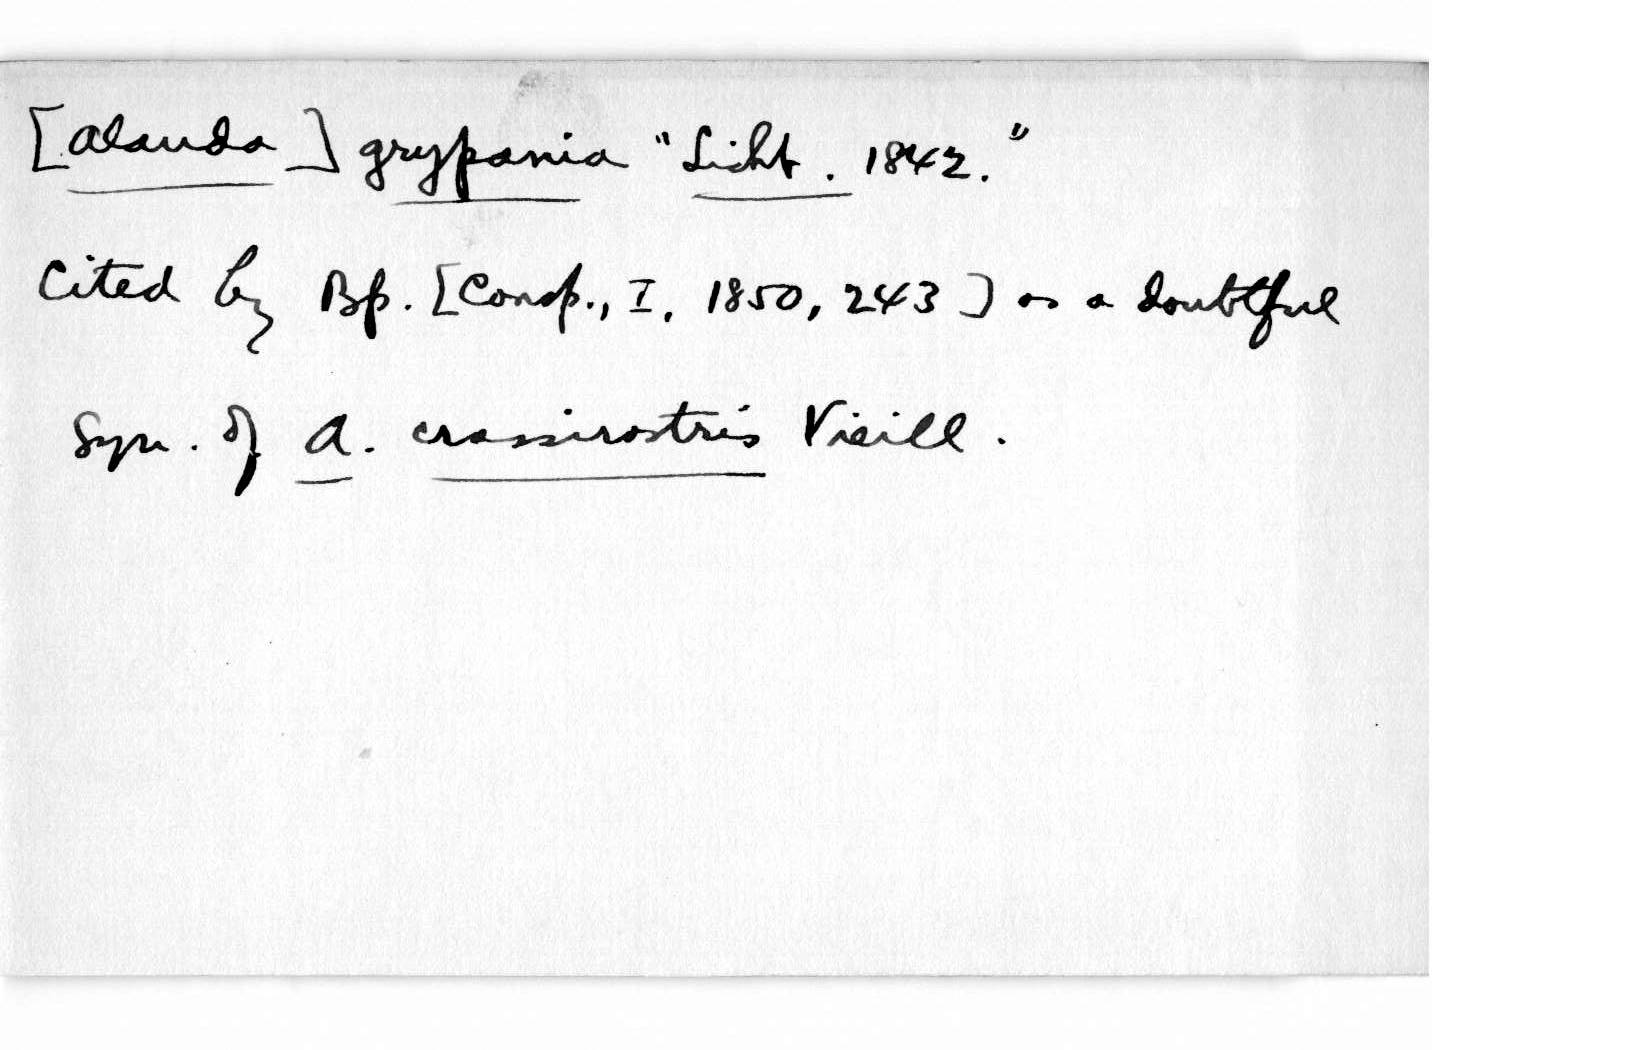 [Alauda] grypania "Licht. 1842."
Cited by Bp. [Consp., I, 1850, 243] as a doubtful
Syn. of A. crassirostris Vieill.